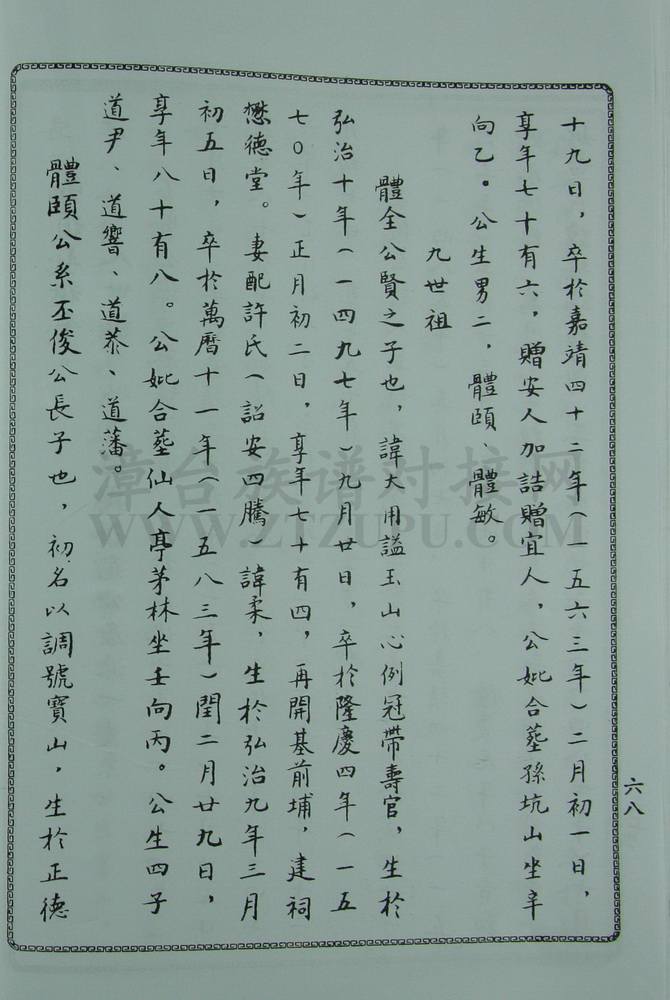 十九日，卒於嘉靖四十二年(一五六三年)二月初一日，
享年七十有六，贈安人加誥贈宜人，公妣合塟孫坑山坐辛
向乙。公生男二，體頤、體敏。
九世祖
體全公賢之子也，諱大用謚玉山心例冠帶壽官，生於
弘治十年(一四九七年)九月廿日，卒於隆慶四年(一五
七〇年)正月初二日，享年七十有四，再開基前埔，建祠
懋德堂。妻配許氏(詔安四騰)諱柔，生於弘治九年三月
初五日，卒於萬曆十一年(一五八三年)閏二月廿九日，
享年八十有八。公妣合塟仙人亭茅林坐壬向丙。公生四子
道尹、道響、道恭、道藩。
體頤公系丕俊公長子也，初名以調號寶山，生於正德
六八
漳台族谱对接网
WWW.ZTZUPU.COM